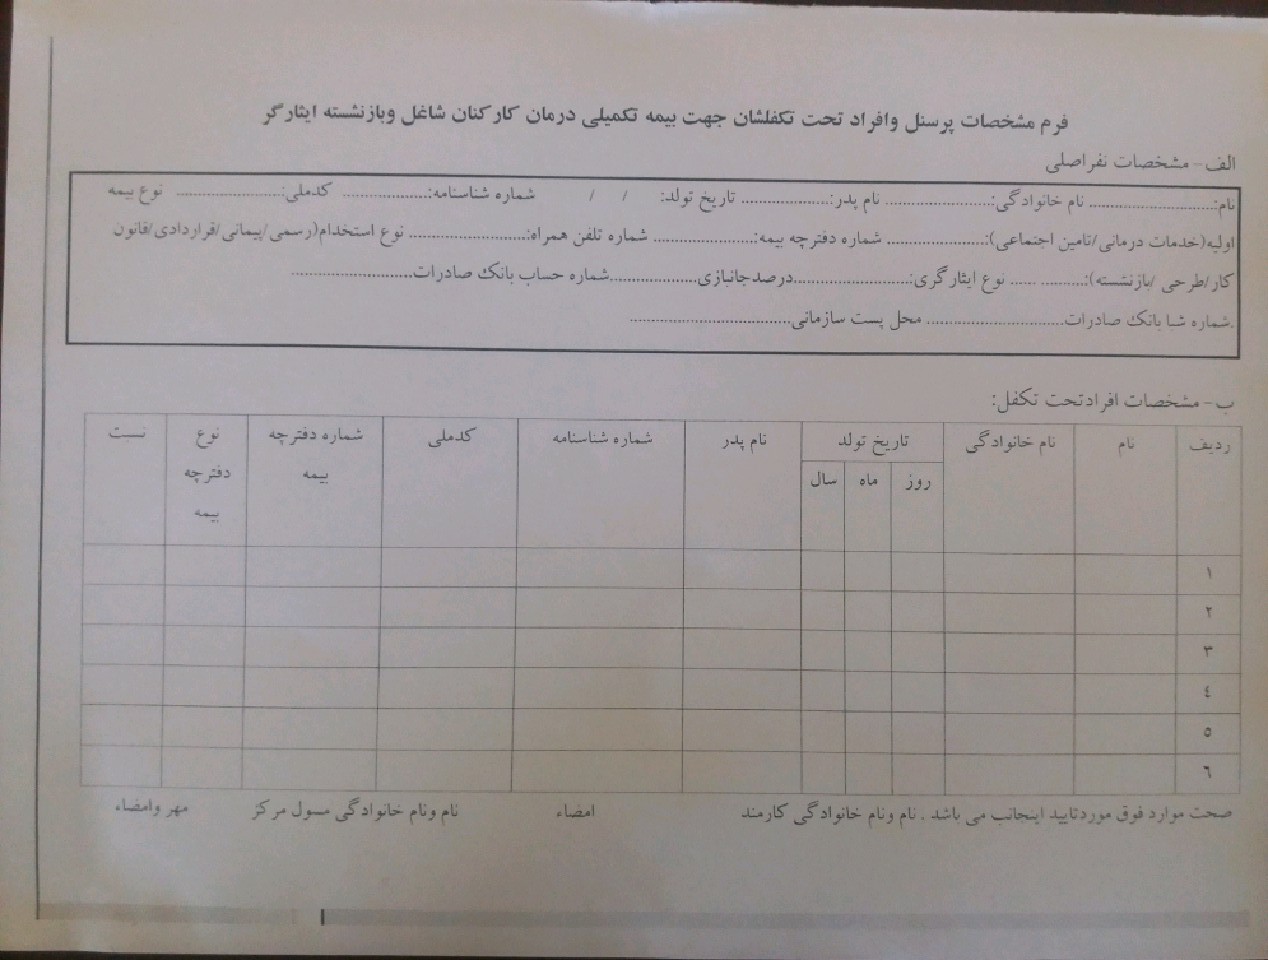 فرم مشخصات پرسنل وافراد تحت تکفلشان جهت بیمه تکمیلی درمان کارکنان شاغل وبازنشسته ایثارگر
الف- مشخصات نفراصلی
نام:............................ نام خانوادگی:........................ نام پدر:.................... تاریخ تولد: / / شماره شناسنامه:.................... کدملی:........................ نوع بیمه
اولیه(خدمات درمانی/تامین اجتماعی):...................... شماره دفترچه بیمه:....................... شماره تلفن همراه:........................... نوع استخدام(رسمی/پیمانی/قراردادی/قانون
کار/طرحی /بازنشسته):.......... ...... نوع ایثارگری:...........................درصدجانبازی....................شماره حساب بانک صادرات...........................
.شماره شبا بانک صادرات................................ محل پست سازمانی.....................................
ب- مشخصات افرادتحت تکفل:
ردیف نام نام خانوادگی تاریخ تولد نام پدر شماره شناسنامه کدملی شماره دفترچه بیمه نوع دفترچه بیمه نسبت
روز ماه سال
۱
۲
۳
٤
٥
٦
صحت موارد فوق موردتایید اینجانب می باشد . نام ونام خانوادگی کارمند امضاء نام ونام خانوادگی مسول مرکز مهر وامضاء